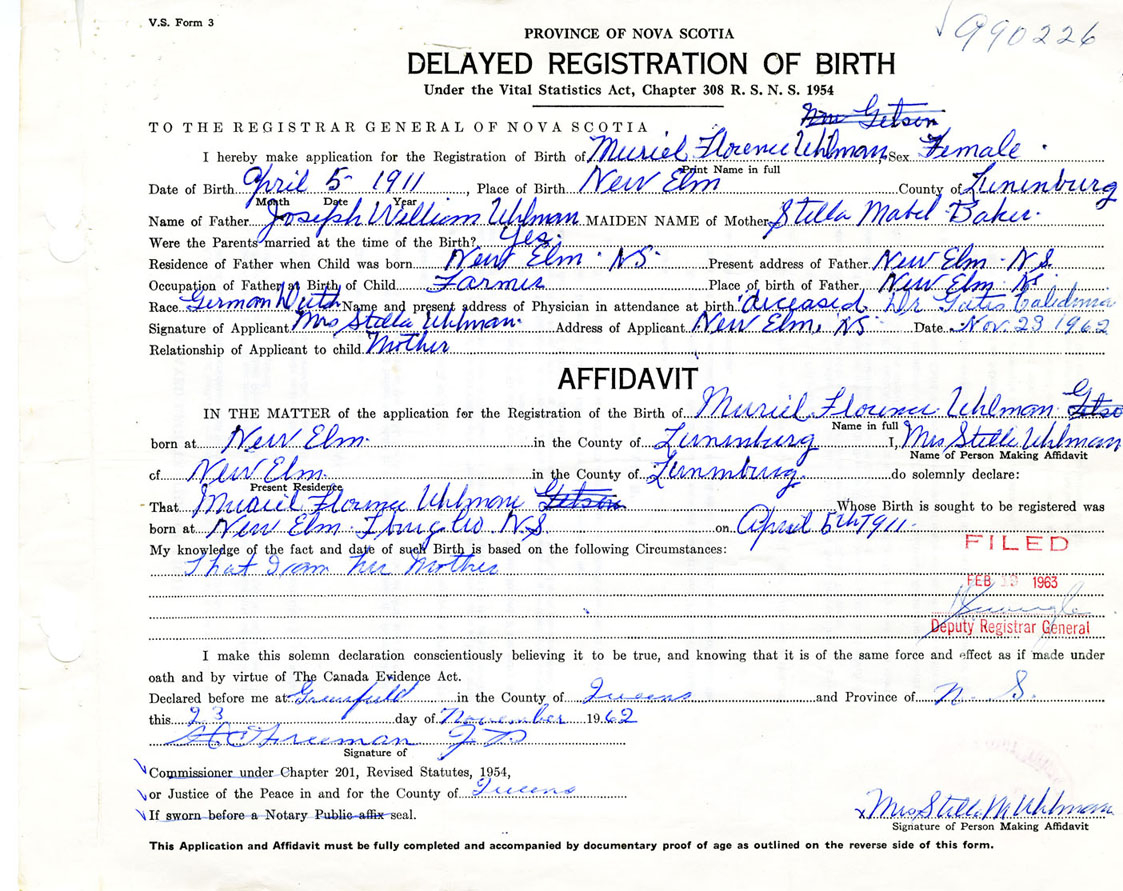 V.S. Form 3
990226
PROVINCE OF NOVA SCOTIA
DELAYED REGISTRATION OF BIRTH
Under the Vital Statistics Act, Chapter 308 R. S. N. S. 1954
Getson
TO THE REGISTRAR GENERAL OF NOVA SCOTIA
I hereby make application for the Registration of Birth of Muriel Florence Uhlman Sex Female
Print Name in full
Date of Birth April 5 1911, Place of Birth New Elm County of Lunenburg
Month Date Year
Name of Father Joseph William Uhlman MAIDEN NAME of Mother Stella Mabel Baker
Were the Parents married at the time of the Birth? Yes
Residence of Father when Child was born New Elm NS. Present address of Father New Elm N.S.
Occupation of Father at Birth of Child Farmer Place of birth of Father New Elm NS
Race German Duth Name and present address of Physician in attendance at birth deceased Dr
Signature of Applicant Mrs Stella Uhlman. Address of Applicant New Elm, NS Date Nov. 23 1962
Relationship of Applicant to child Mother
AFFIDAVIT
IN THE MATTER of the application for the Registration of the Birth of Muriel Florence Uhlman
Name in full
born at New Elm in the County of Lunenburg I, Mrs Stella Uhlman
Name of Person Making Affidavit
of New Elm in the County of Lunenburg do solemnly declare:
Present Residence
That Muriel Florence Uhlman Getson Whose Birth is sought to be registered was
born at New Elm N.S. on April 5th 1911.
My knowledge of the fact and date of such Birth is based on the following Circumstances:
That I am her Mother
FILED
FEB 19 1963
Deputy Registrar General
I make this solemn declaration conscientiously believing it to be true, and knowing that it is of the same force and effect as if made under
oath and by virtue of The Canada Evidence Act.
Declared before me at Greenfield in the County of Queens and Province of N. S.
this 23 day of November 1962
Freeman J P
Signature of
Commissioner under Chapter 201, Revised Statutes, 1954,
or Justice of the Peace in and for the County of Queens
If sworn before a Notary Public affix seal.
Mrs Stella M Uhlman
Signature of Person Making Affidavit
This Application and Affidavit must be fully completed and accompanied by documentary proof of age as outlined on the reverse side of this form.